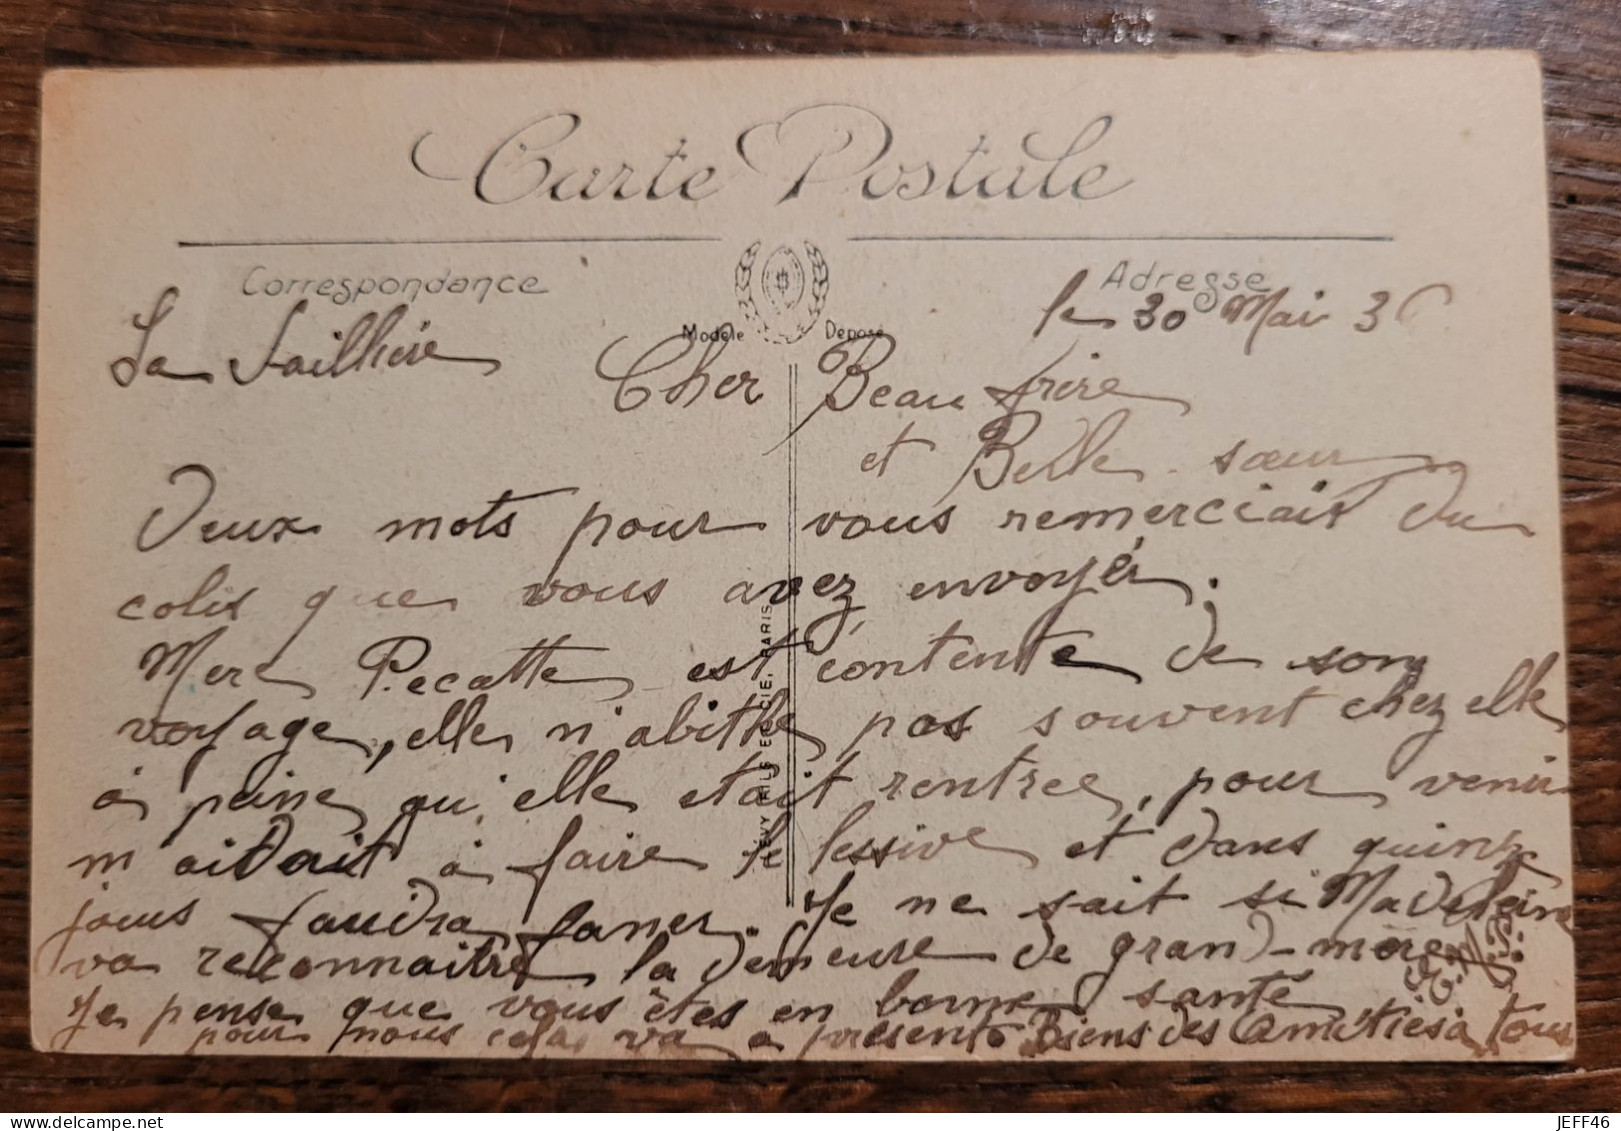 Carte Postale
Correspondance
Adresse
Modèle Déposé
le 30 Mai 36
La Sailhière
Cher Beau frère
et Belle-sœur
Deux mots pour vous remerciait du
colis que vous avez envoyér.
Mere Pecatte est contente de son
voyage, elle n'abithe pas souvent chez elle
à peine qu'elle etait rentree, pour venir
m'aidait à faire le lessive et dans quinze
jours faudra faner. Je ne sait si Madeleine
va reconnaitre la demeure de grand-mère
Je pense que vous êtes en bonne santé
pour nous cela va a présent Biens des Amitiés à tous
LEVY FILS ET CIE, PARIS
JEFF46